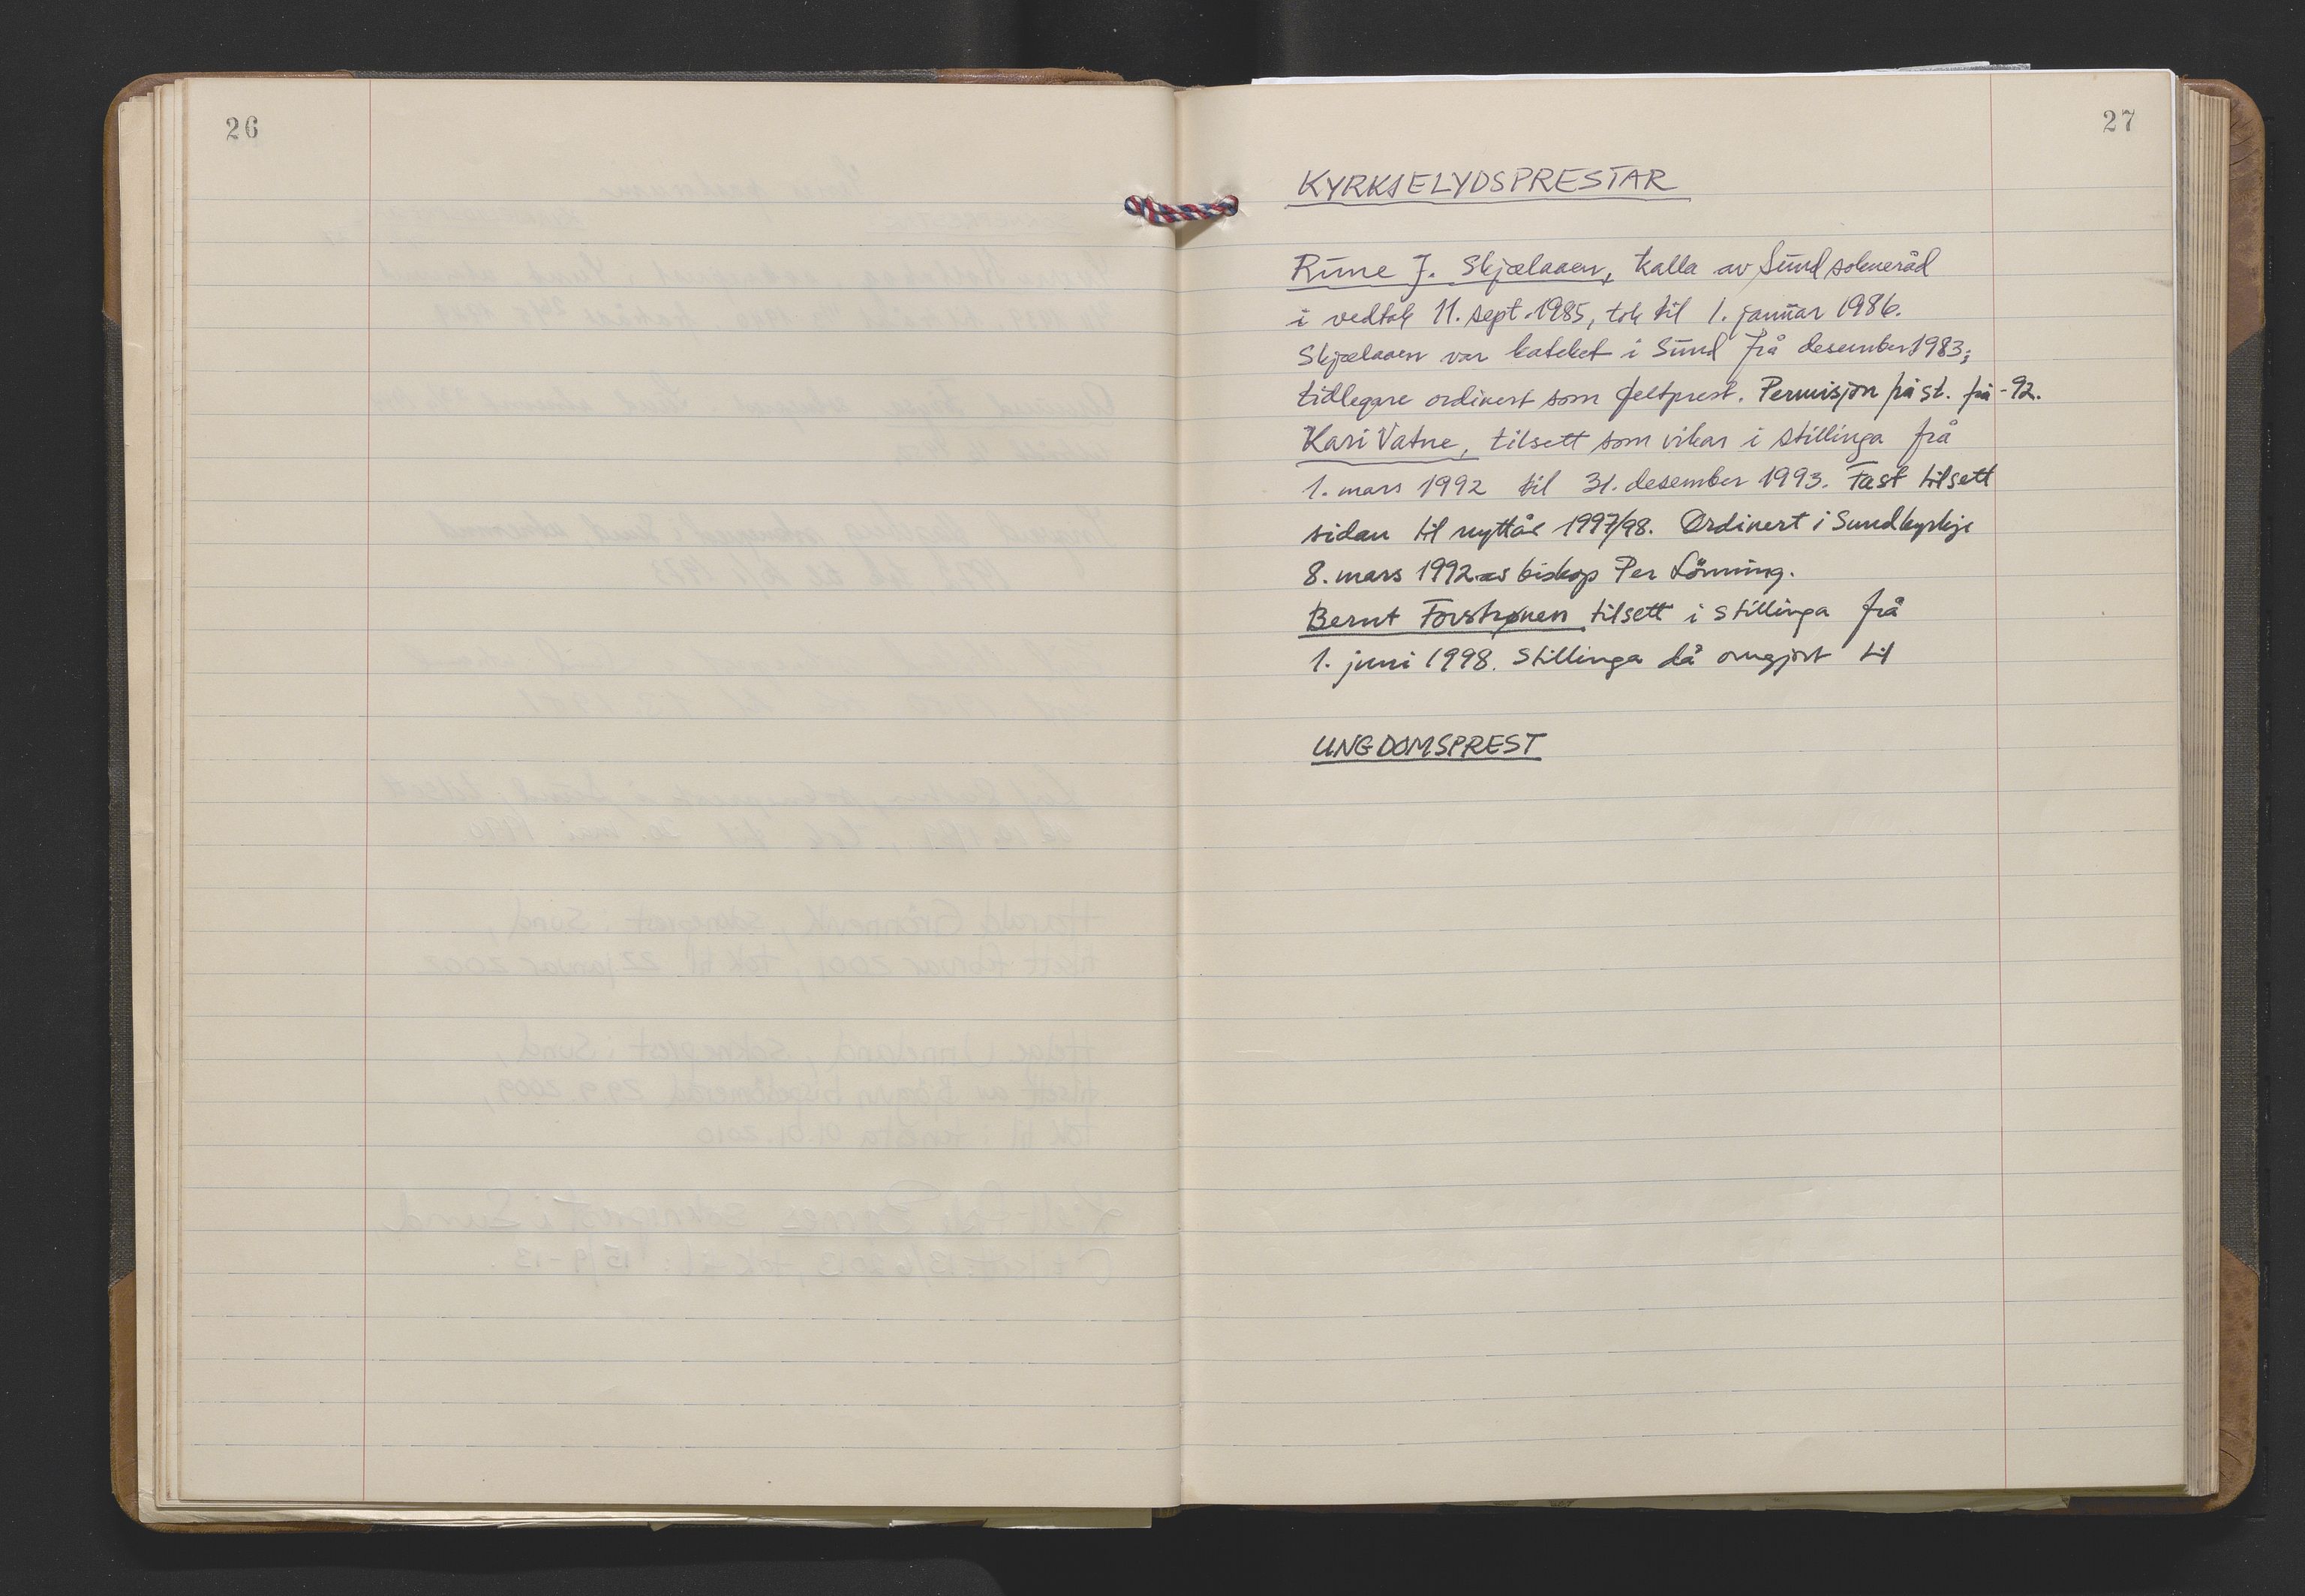 26
27
KYRKJELYDSPRESTAR
Rune J. Skjælaaen, kalla av Sund sokneråd
i vedtak 11. sept. 1985, tok til 1. januar 1986.
Skjælaaen var kateket i Sund frå desember 1983;
tidlegare ordinert som feltprest. Permisjon på st. frå -92.
Kari Vatne, tilsett som vikar i stillinga frå
1. mars 1992 til 31. desember 1993. Fast tilsett
sidan til nyttår 1997/98. Ordinert i Sund kyrkje
8. mars 1992 av biskop Per Lönning.
Bernt Forstrønen tilsett i stillinga frå
1. juni 1998. Stillinga då omgjort til
UNGDOMSPREST